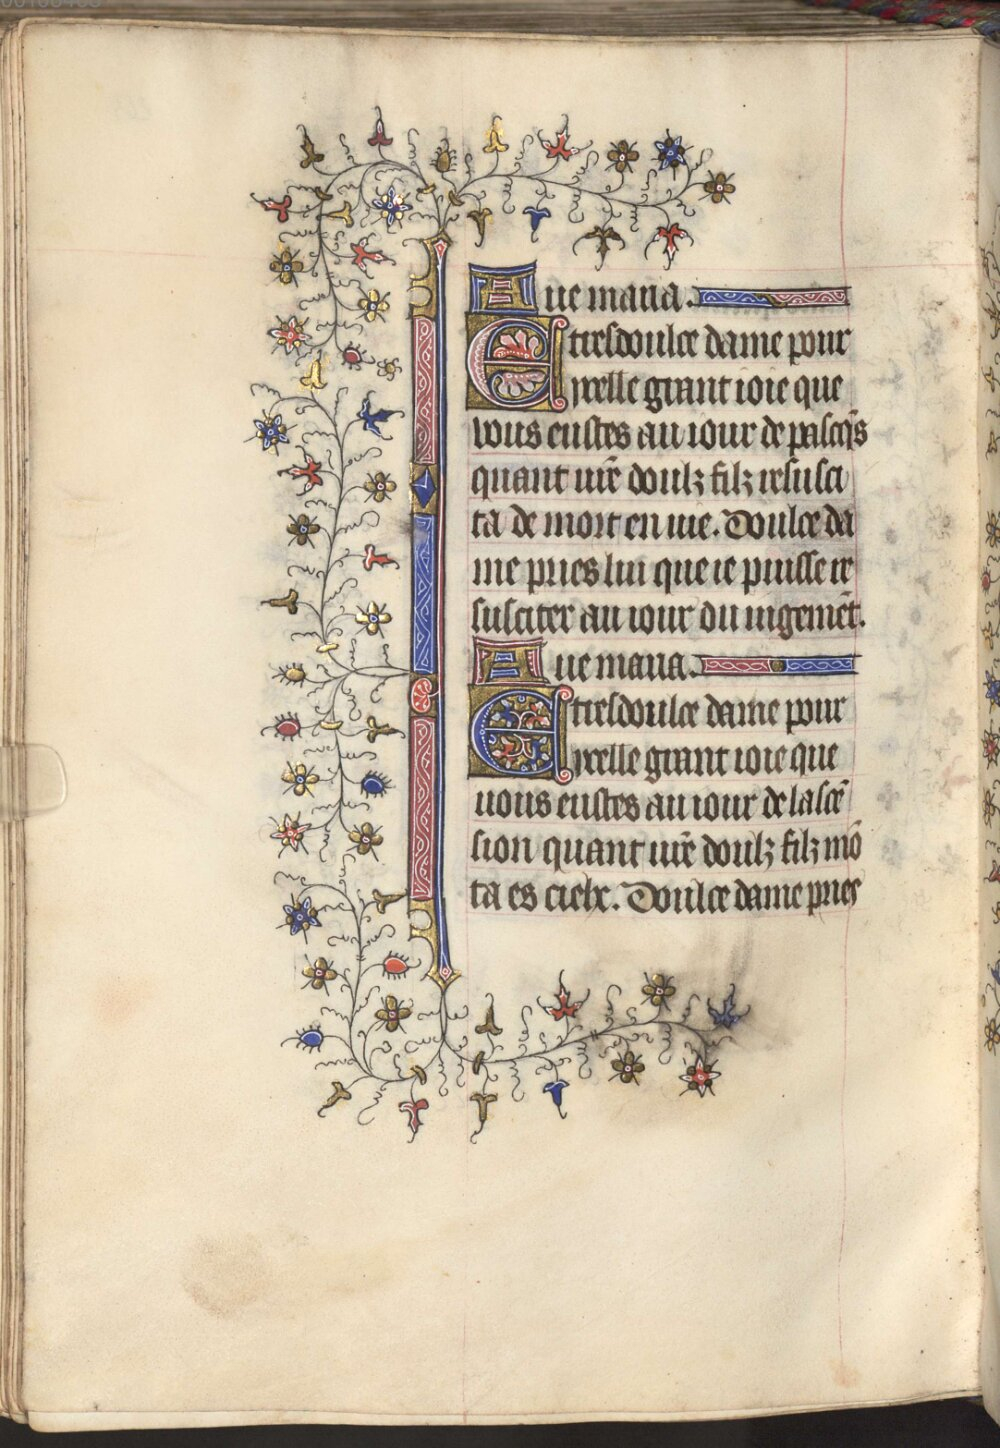 Aue maria.
E tresdoulce dame pour
ycelle grant ioie que
vous eustes au iour de pascq̃s
quant vr̃e doulz filz resusci
ta de mort en vie. Doulce da
me pries lui que ie puisse re
susciter au iour du iugemẽt.
Aue maria.
E tresdoulce dame pour
ycelle grant ioie que
vous eustes au iour de lascẽ
sion quant vr̃e doulz filz mõ
ta es cielx. Doulce dame pries